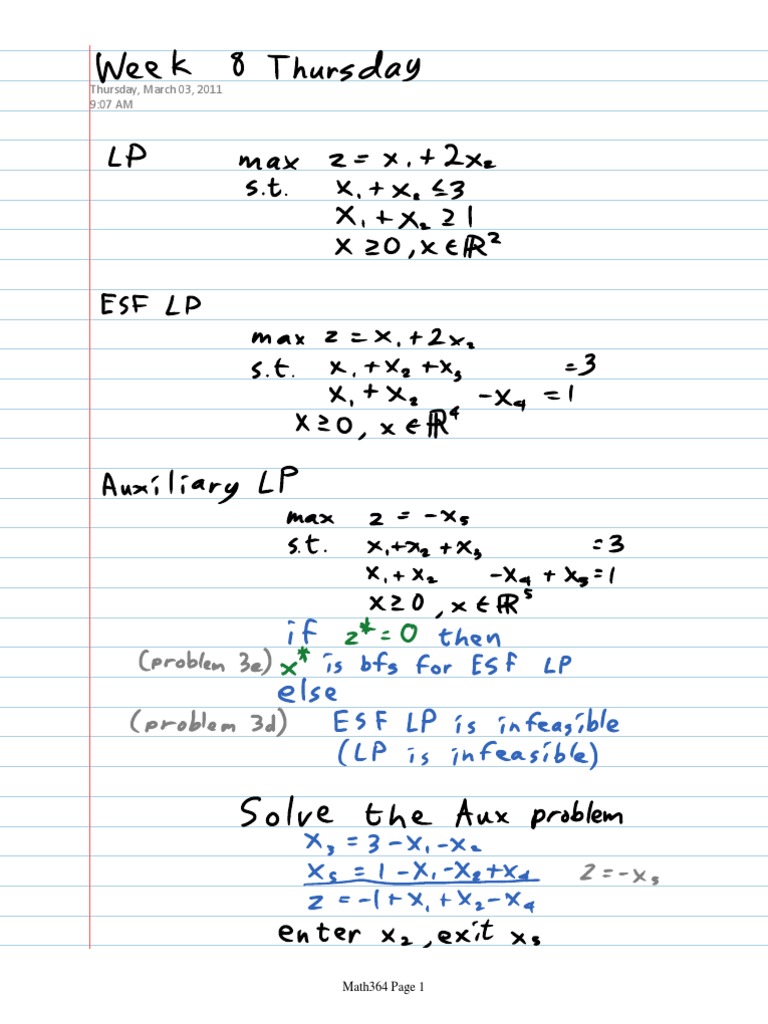 Week 8 Thursday
Thursday, March 03, 2011
9:07 AM
LP max z = x₁ + 2x₂
s.t. x₁ + x₂ ≤ 3
x₁ + x₂ ≥ 1
x ≥ 0, x ∈ ℝ²
ESF LP
max z = x₁ + 2x₂
s.t. x₁ + x₂ + x₃ = 3
x₁ + x₂ - x₄ = 1
x ≥ 0, x ∈ ℝ⁴
Auxiliary LP
max z = -x₅
s.t. x₁ + x₂ + x₃ = 3
x₁ + x₂ - x₄ + x₅ = 1
x ≥ 0, x ∈ ℝ⁵
if z* = 0 then
(problem 3e) x* is bfs for ESF LP
else
(problem 3d) ESF LP is infeasible
(LP is infeasible)
Solve the Aux problem
x₃ = 3 - x₁ - x₂
x₅ = 1 - x₁ - x₂ + x₄ z = -x₅
z = -1 + x₁ + x₂ - x₄
enter x₂, exit x₅
Math364 Page 1